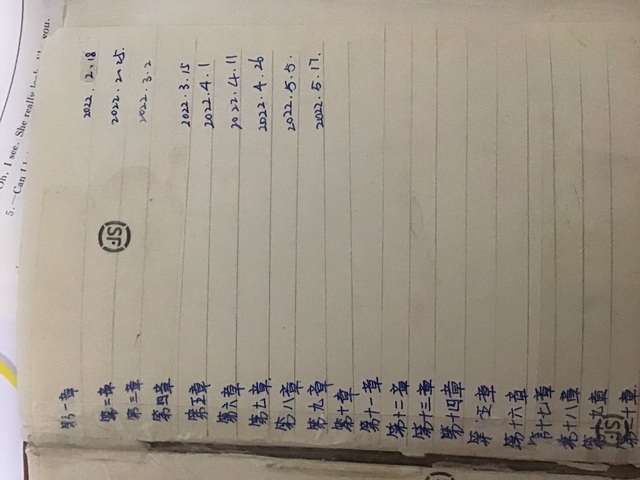 Oh, I see. She really you.
5.—Can I
第一章 2022.2.18
第二章 2022.2.25.
第三章 2022.3.2
第四章 2022.3.15
第五章 2022.4.1
第六章 2022.4.11
第七章 2022.4.26
第八章 2022.5.5.
第九章 2022.5.17.
第十章
第十一章
第十二章
第十三章
第十四章
第 五章
第十六章
第十七章
第十八章
第十九章
第二十章
SF
SF